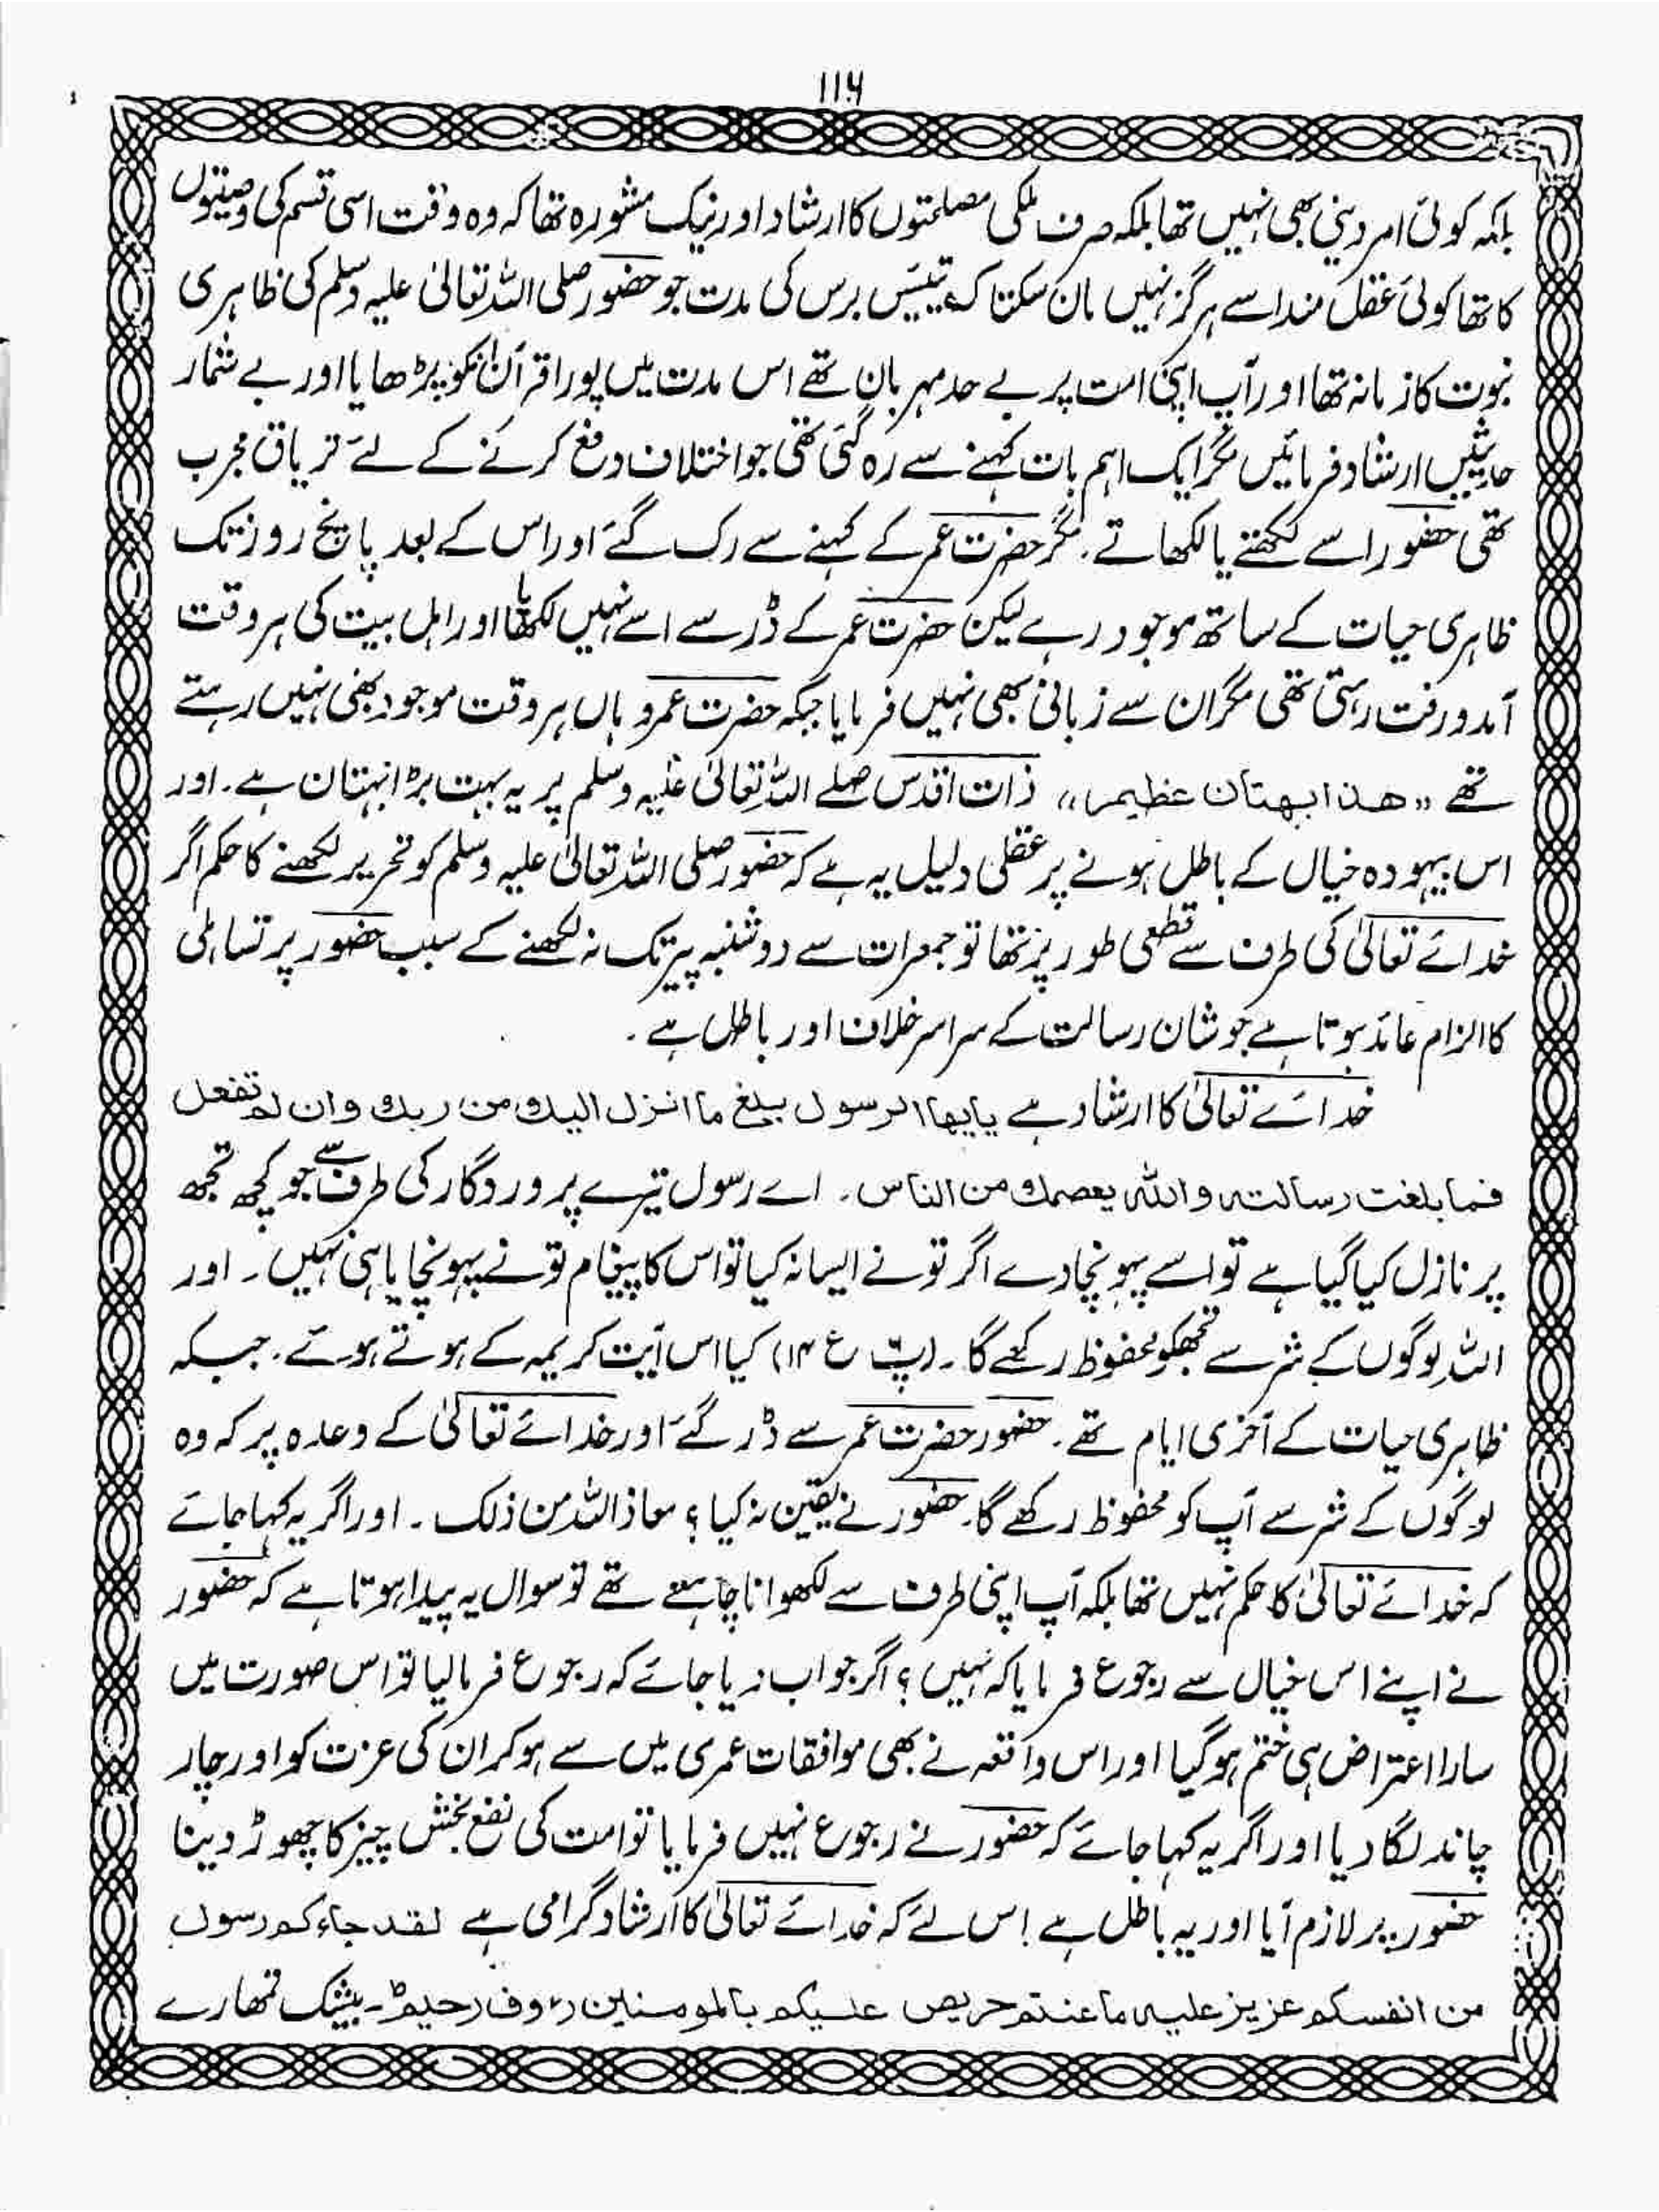 ۱۱۶
بلکہ کوئی امر دینی بھی نہیں تھا بلکہ صرف ملکی مصلحتوں کا ارشاد اور نیک مشورہ تھا کہ وہ وقت اسی قسم کی وصیتوں
کا تھا کوئی عقل مند اسے ہرگز نہیں مان سکتا کہ تیئیس برس کی مدت جو حضور صلی اللہ تعالیٰ علیہ وسلم کی ظاہری
نبوت کا زمانہ تھا اور آپ اپنی امت پر بے حد مہربان تھے اس مدت میں پورا قرآن انکو پڑھایا اور بے شمار
حدیثیں ارشاد فرمائیں مگر ایک اہم بات کہنے سے رہ گئی تھی جو اختلاف دفع کرنے کے لئے تریاق مجرب
تھی حضور اسے لکھتے یا لکھاتے۔ مگر حضرت عمر کے کہنے سے رک گئے اور اس کے بعد پانچ روز تک
ظاہری حیات کے ساتھ موجود رہے لیکن حضرت عمر کے ڈر سے اسے نہیں لکھایا اور اہل بیت کی ہر وقت
آمد و رفت رہتی تھی مگر ان سے زبانی بھی نہیں فرمایا جبکہ حضرت عمر وہاں ہر وقت موجود بھی نہیں رہتے
تھے ،،ھذا بھتان عظیم،، ذات اقدس صلے اللہ تعالیٰ علیہ وسلم پر یہ بہت بڑا بہتان ہے۔ اور
اس بیہودہ خیال کے باطل ہونے پر عقلی دلیل یہ ہے کہ حضور صلی اللہ تعالیٰ علیہ وسلم کو تحریر لکھنے کا حکم اگر
خدائے تعالیٰ کی طرف سے قطعی طور پر تھا تو جمعرات سے دوشنبہ پیر تک نہ لکھنے کے سبب حضور پر تساہلی
کا الزام عائد ہوتا ہے جو شان رسالت کے سراسر خلاف اور باطل ہے۔
خدائے تعالیٰ کا ارشاد ہے یایھا الرسول بلغ ما انزل الیک من ربک وان لم تفعل
فما بلغت رسالتہ واللہ یعصمک من الناس۔ اے رسول تیرے پروردگار کی طرف سے جو کچھ تجھ
پر نازل کیا گیا ہے تو اسے پہونچا دے اگر تو نے ایسا نہ کیا تو اس کا پیغام تو نے پہونچایا ہی نہیں۔ اور
اللہ لوگوں کے شر سے تجھکو محفوظ رکھے گا۔ (پ۶ ع ۱۴) کیا اس آیت کریمہ کے ہوتے ہوئے۔ جبکہ
ظاہری حیات کے آخری ایام تھے۔ حضور حضرت عمر سے ڈر گئے اور خدائے تعالیٰ کے وعدہ پر کہ وہ
لوگوں کے شر سے آپ کو محفوظ رکھے گا۔ حضور نے یقین نہ کیا؟ معاذ اللہ من ذلک۔ اور اگر یہ کہا جائے
کہ خدائے تعالیٰ کا حکم نہیں تھا بلکہ آپ اپنی طرف سے لکھوانا چاہتے تھے تو سوال یہ پیدا ہوتا ہے کہ حضور
نے اپنے اس خیال سے رجوع فرمایا کہ نہیں؟ اگر جواب دیا جائے کہ رجوع فرمالیا تو اس صورت میں
سارا اعتراض ہی ختم ہوگیا اور اس واقعہ نے بھی موافقات عمری میں سے ہوکر ان کی عزت کو اور چار
چاند لگا دیا اور اگر یہ کہا جائے کہ حضور نے رجوع نہیں فرمایا تو امت کی نفع بخش چیز کا چھوڑ دینا
حضور پر لازم آیا اور یہ باطل ہے اس لئے کہ خدائے تعالیٰ کا ارشاد گرامی ہے لقد جاءکم رسول
من انفسکم عزیز علیہ ما عنتم حریص علیکم بالمومنین رءوف رحیم۔ بیشک تمھارے